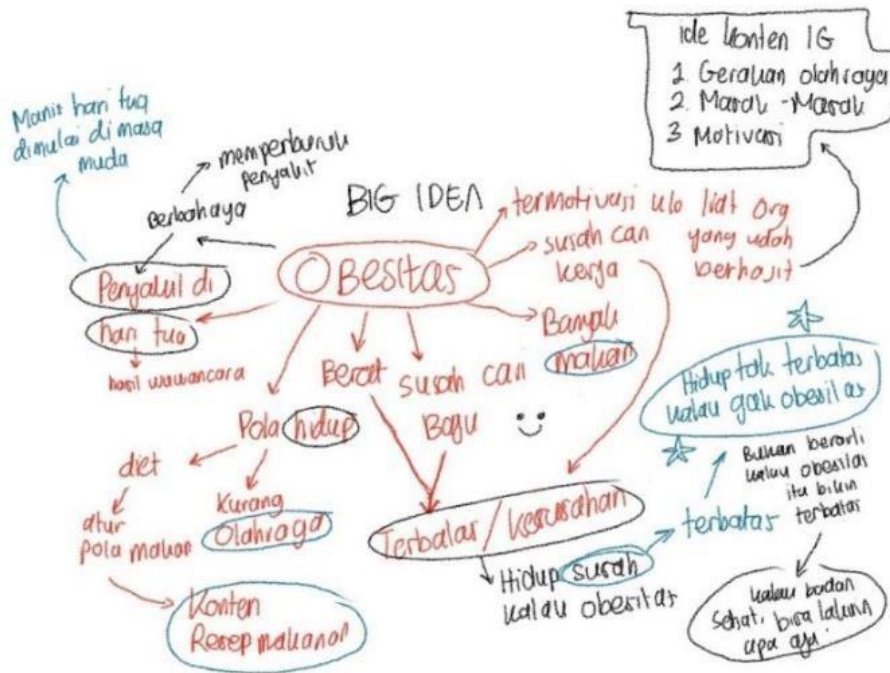 ide konten IG
1. Gerakan olahraga
2. Masak - Masak
3 Motivasi
Manis hari tua
dimulai di masa
muda
memperburuk
penyakit
Berbahaya
BIG IDEA
OBesitas
termotivasi klo liat org
yang udah
berhasil
susah cari
kerja
Banyak
makan
Penyakit di
hari tua
hasil wawancara
Berat
susah cari
Baju
Pola hidup
diet
atur
pola makan
Kurang
Olahraga
Konten
Resep makanan
Terbatas / kesusahan
Hidup susah
kalau obesitas
terbatas
Hidup tak terbatas
kalau gak obesitas
Bukan berarti
kalau obesitas
itu bikin
terbatas
kalau badan
sehat, bisa lakuin
apa aja.